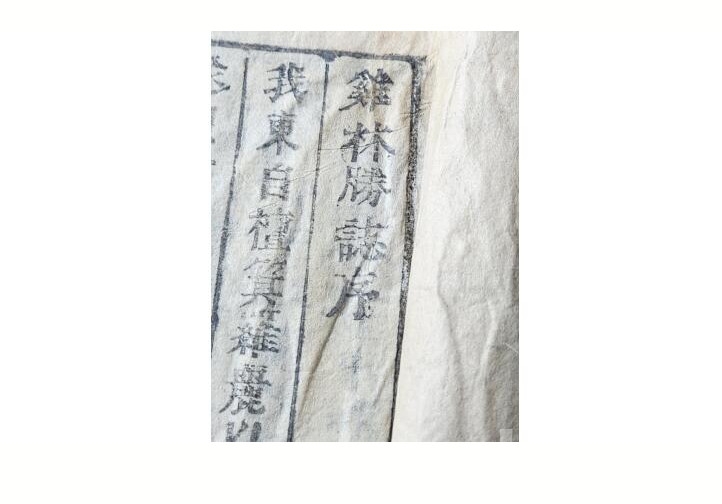 雞林勝誌序
我東自檀箕羅麗